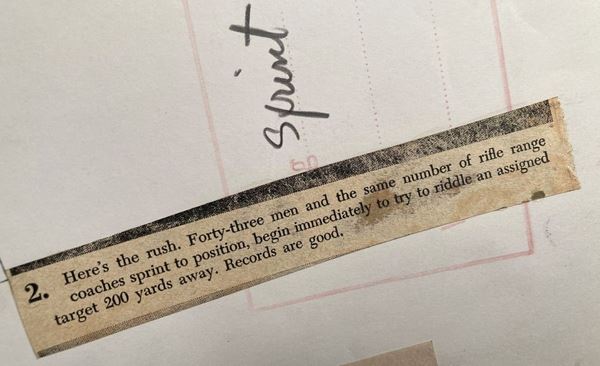 Sprint
2. Here's the rush. Forty-three men and the same number of rifle range
coaches sprint to position, begin immediately to try to riddle an assigned
target 200 yards away. Records are good.